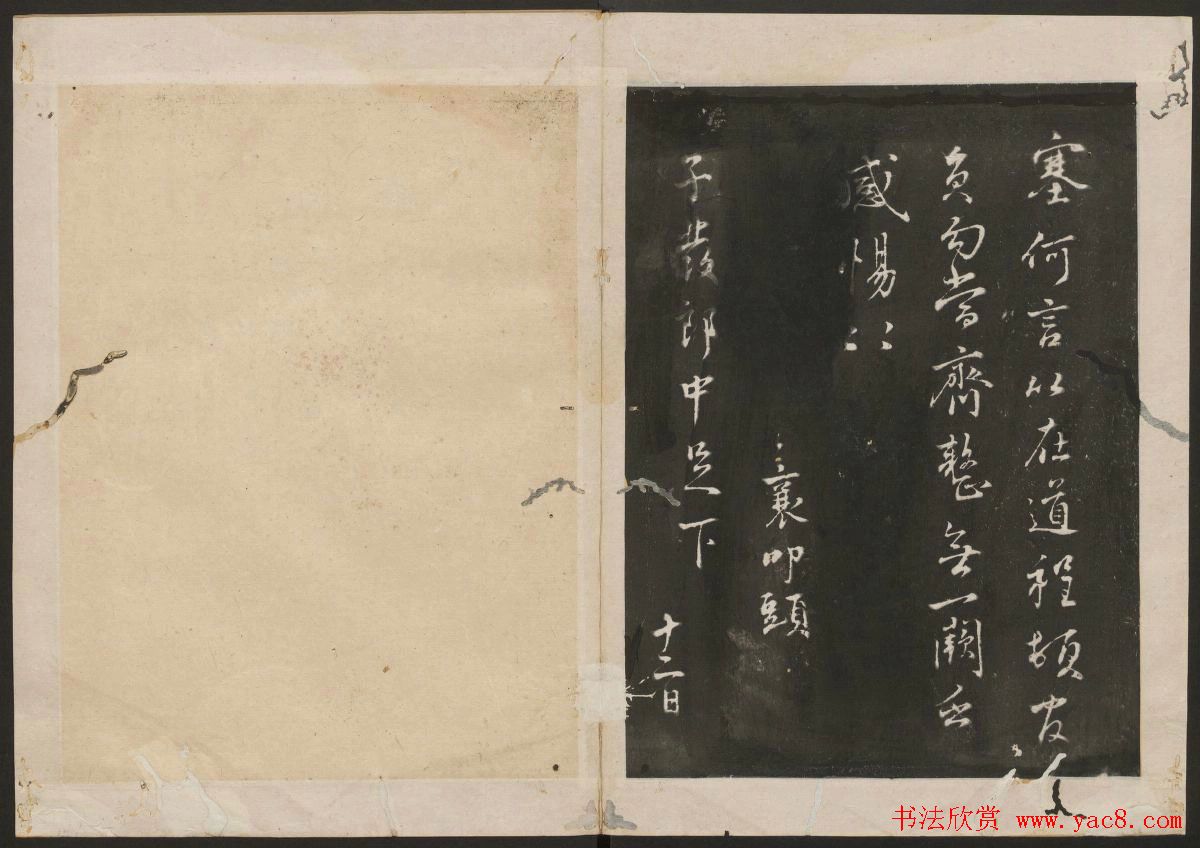 塞何言以在道程頓
負勿當齊整無一闕
感惕
襄叩頭
子發郎中足下
十二日
书法欣赏 www.yac8.com